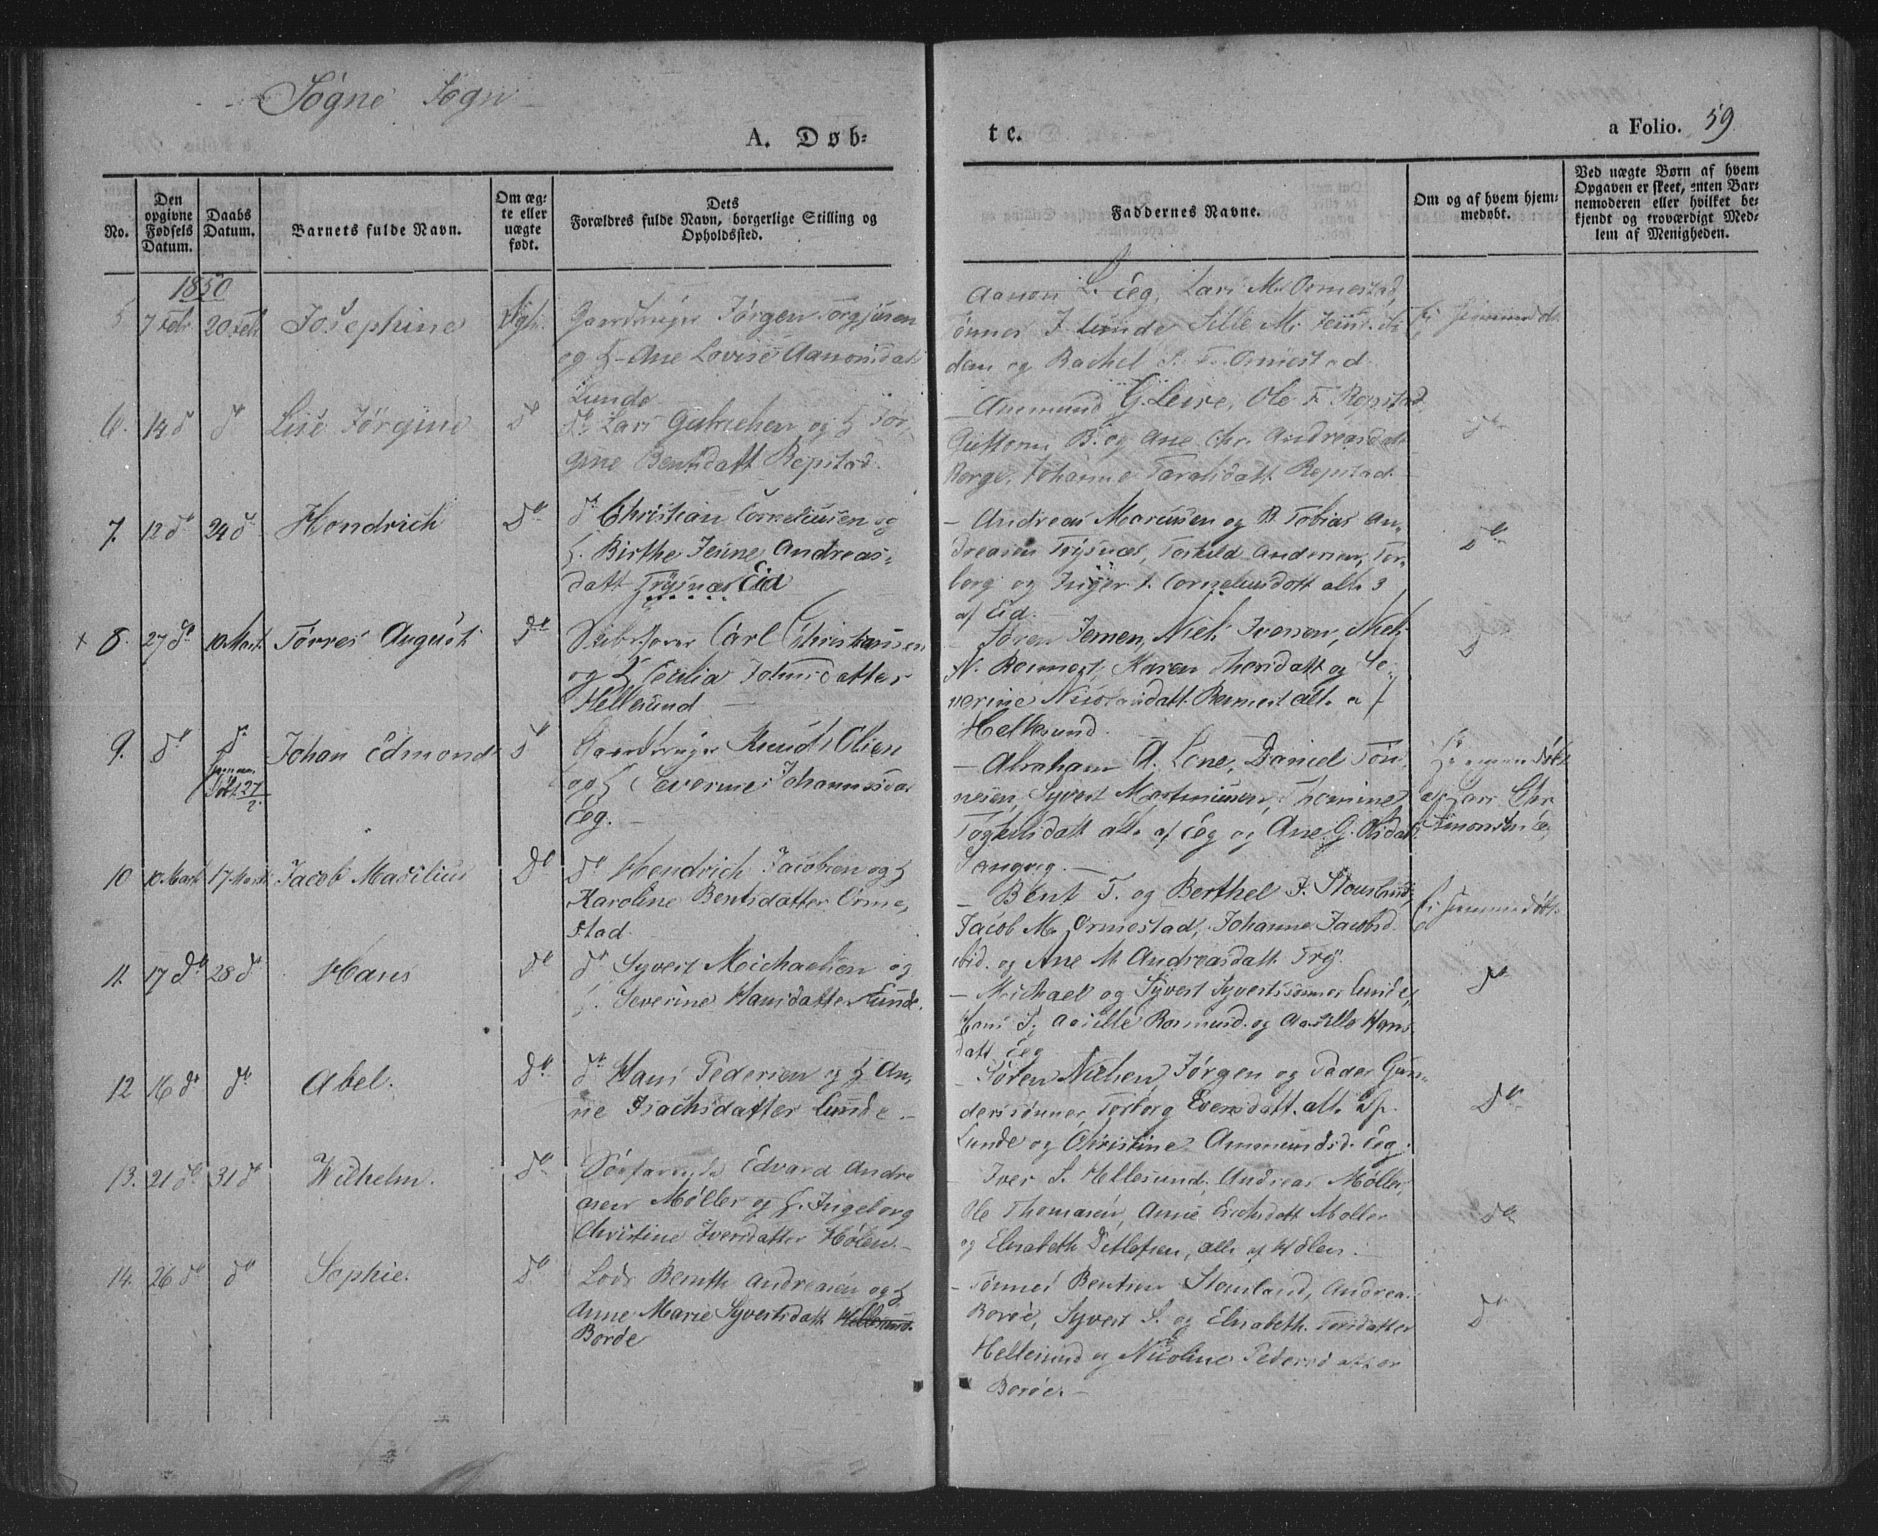 Søgne Sogn
A. Døb-
te.
a Folio. 59
No.
Den opgivne Fødsels Datum.
Daabs Datum.
Barnets fulde Navn.
Om ægte eller uægte født.
Dets
Forældres fulde Navn, borgerlige Stilling og
Opholdssted.
Faddernes Navne.
Om og af hvem hjem-
medøbt.
Ved uægte Børn af hvem
Opgaven er skeet, enten Bar-
nemoderen eller hvilket be-
kjendt og troværdigt Med-
lem af Menigheden.
1850
5 7 Febr 20 Febr Josephine Ægte
Gaardbruger Jørgen Torgjusen
og H. Ane Lovise Aanonsdatt
Lunde
Aanon L. Eeg, Lars M. Ormestad,
Tønnes J. Lunde Sille M.
og Rachel S. F. Ormestad
6. 14 do do Lise Jørgine do
do Lars Gabrielsen og H Jør-
gine Bentsdatt Repstad.
– Aanmund G. Leire, Ole F. Repstad
Guttorm B. og Ane Chr. Andreasdatt
Berge, Johanne Taraldsdatt Repstad
do
7. 12 do 24 do Hendrich Do
do Christian Corneliusen og
H. Birthe Jenne Andreas-
datt Trysnæs Eid
– Andreas Marcussen og B Tobias An-
dreasen Trysnæs, Torkild Andersen, Tor-
borg og Inger T. Corneliusdatt alle 3
af Eid.
Do
+ 8. 27 do 10 Mart. Tørres August Do
Skibsfører Carl Christensen
og H Cecilia Johnsdatter
Hellesund –
– Søren Jensen, Niels Iversen,
N. Reimert, Karen Thorsdatt og Se-
verine Nicolaidatt Reimert alle af
Hellesund.
Do
9. do do Johan Edmond do
hjemmedøbt 27/2
Gaardbruger Knud Olsen
og H Severine Johannesdat
Eeg. –
– Abraham A. Lone, Daniel Tøn-
nesen, Syvert Martinusen, Thomine
alle af Eeg og Ane G. Olsdatt
Songvig. –
Hjemmedøbt
af Lars Chr
Simonsen Eeg
10 10 Mart 17 Mart Jacob Masilius Do
do Hendrich Jacobsen og H
Karoline Bentsdatter Orme-
stad.
– Bent T. og Berthel P. Stousland,
Jacob M. Ormestad, Johanne Jacobsd.
ibid. og Ane M Andreasdatt Try.
Ei hjemmedøbt.
11. 17 do 28 do Hans Do
do Syvert Michaelsen og
H. Severine Hansdatter Lunde.
– Michael og Syvert Syvertssønner Lunde,
Hans S, Aasille Rasmusd. og Aasille Hans-
datt Eeg
do
12 16 do do Abel. Do
do Hans Pedersen og H An-
ne Isachsdatter Lunde –
– Søren Nielsen, Jørgen og Peder Gun-
derssønner, Torborg Evensdatt. alle af
Lunde og Christine Ammundsd. Eeg.
Do
13. 21 do 31 do Wilhelm. Do
Edvard Andre
asen Møller og H. Ingeborg
Christine Iversdatter Hølen –
– Iver S. Hellesund, Andreas Møller,
Ole Thomasen, Anne Møller
og Elisabeth Ditlefsen, alle af Hølen. –
Do
14. 26 do do Sophie. Do
Lods Bernth Andreasen og H
Anne Marie Syvertsdatt Hellesund.
Borøe
– Tønnes Bentsen Stousland, Andreas
Borøe, Syvert S. og Elisabeth Torsdatter
Hellesund og Nicoline Pedersdatter
Borøe. –
Do